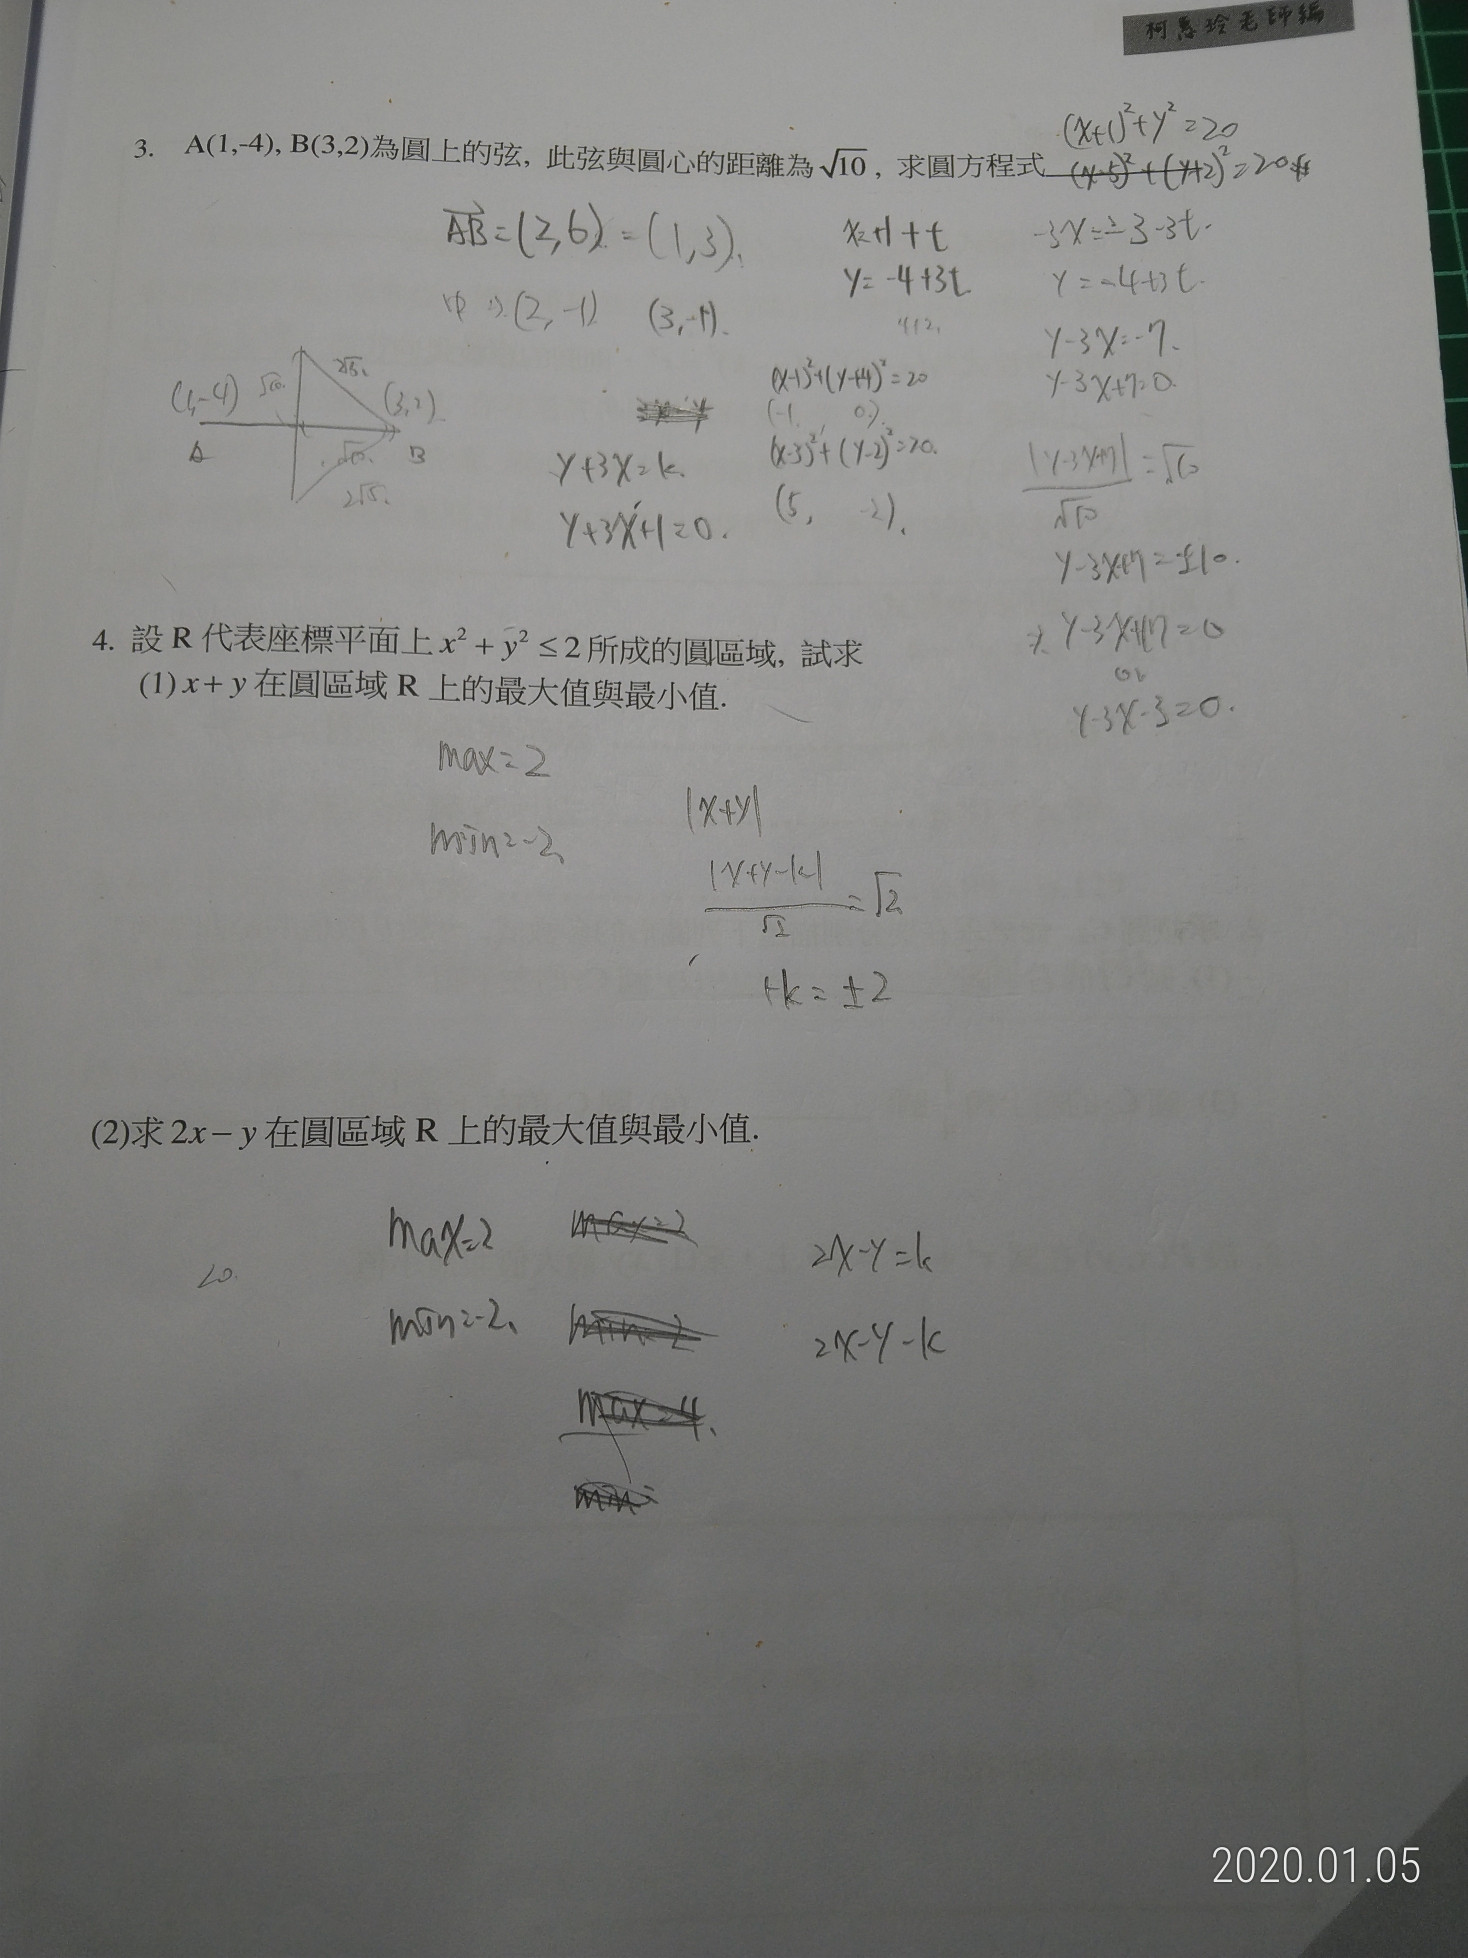 柯惠玲老師編
(x+1)²+y²=20
3. A(1,-4), B(3,2)為圓上的弦, 此弦與圓心的距離為√10, 求圓方程式 (x-5)²+(y+2)²=20
AB=(2,6)=(1,3)
中(2,-1) (3,-1)
x=1+t
y=-4+3t
-3x=-3-3t
y=-4+3t
y-3x=-7
y-3x+7=0
|y-3x+7|/√10=√10
y-3x+7=±10
y-3x+17=0
or
y-3x-3=0
(1,-4) √10 2√5 (3,2)
A √10 B
2√5
y+3x=k
y+3x+1=0
(x-1)²+(y+4)²=20
(-1, 0)
(x-3)²+(y-2)²=20
(5, -2)
4. 設 R 代表座標平面上 x²+y²≤2 所成的圓區域, 試求
(1) x+y 在圓區域 R 上的最大值與最小值.
max=2
min=-2
|x+y|
|x+y-k|/√2=√2
+k=±2
(2)求 2x-y 在圓區域 R 上的最大值與最小值.
max=2 max=2
min=-2 min=2
max=4
2x-y=k
2x-y-k
2020.01.05